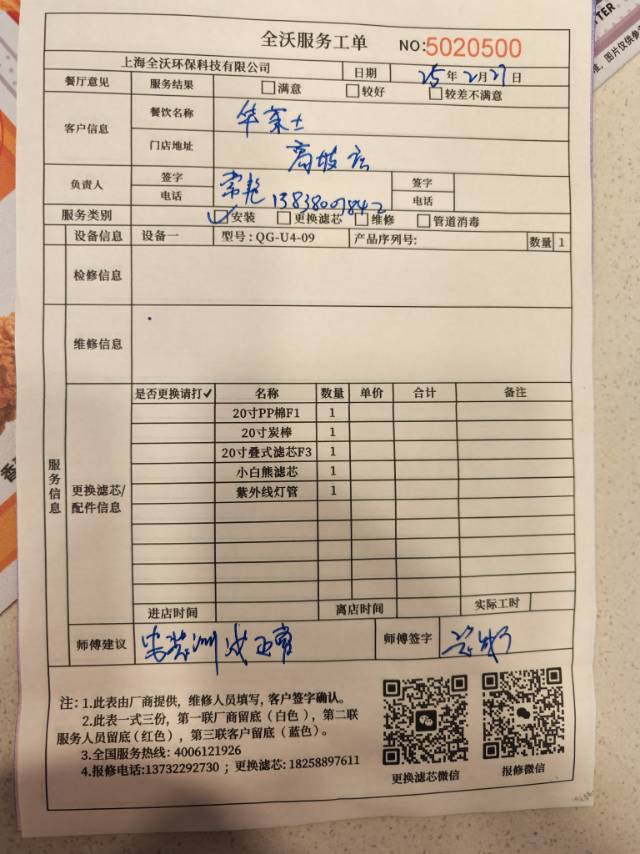 全沃服务工单 NO:5020500
上海全沃环保科技有限公司 日期 25年2月27日
餐厅意见 服务结果 □满意 □较好 □较差不满意
客户信息 餐饮名称 华莱士
门店地址 高坡店
负责人 签字 常艳 签字
电话 13838007842 电话
服务类别 ☑安装 □更换滤芯 □维修 □管道消毒
设备信息 设备一 型号:QG-U4-09 产品序列号: 数量 1
检修信息
维修信息
服务信息
更换滤芯/配件信息
是否更换请打✓ 名称 数量 单价 合计 备注
20寸PP棉F1 1
20寸炭棒 1
20寸叠式滤芯F3 1
小白熊滤芯 1
紫外线灯管 1
进店时间 离店时间 实际工时
师傅建议 安装测试正常 师傅签字
注: 1.此表由厂商提供，维修人员填写，客户签字确认。
2.此表一式三份，第一联厂商留底（白色），第二联
服务人员留底(红色)，第三联客户留底（蓝色）。
3.全国服务热线: 4006121926
4.报修电话:13732292730；更换滤芯: 18258897611
更换滤芯微信 报修微信